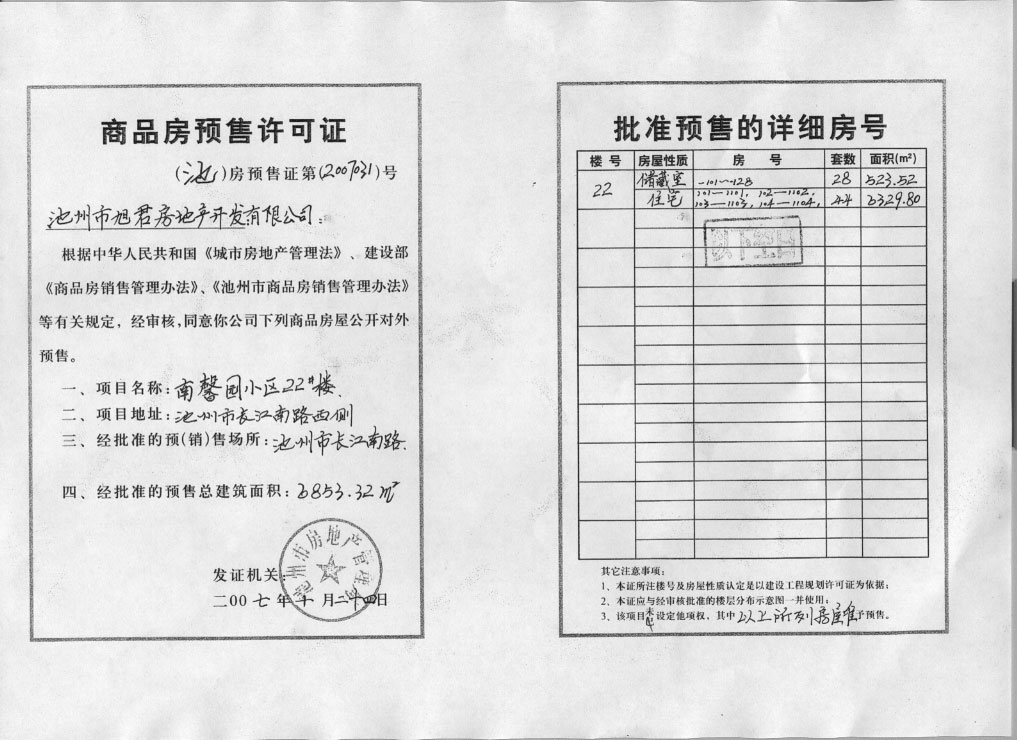 商品房预售许可证
(池)房预售证第(2007031)号
池州市旭君房地产开发有限公司:
根据中华人民共和国《城市房地产管理法》、建设部
《商品房销售管理办法》、《池州市商品房销售管理办法》
等有关规定，经审核,同意你公司下列商品房屋公开对外
预售。
一、项目名称:南馨园小区22#楼.
二、项目地址:池州市长江南路西侧
三、经批准的预(销)售场所:池州市长江南路.
四、经批准的预售总建筑面积:6853.32㎡
池州市房地产管理局
发证机关:
二00七年十月二十四日
批准预售的详细房号
楼号 房屋性质 房号 套数 面积(m²)
22 储藏室 -101~-128 28 523.52
住宅 101—1101, 102—1102, 103—1103, 104—1104, 44 6329.80
其它注意事项:
1、本证所注楼号及房屋性质认定是以建设工程规划许可证为依据;
2、本证应与经审核批准的楼层分布示意图一并使用;
3、该项目未设定他项权, 其中以上所列房屋准予预售。